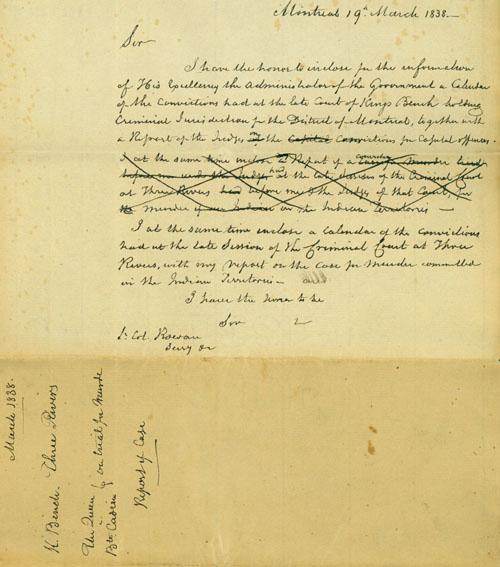 Montreal 19th March 1838.—
Sir
I have the honor to inclose for the information
of His Excellency the Administrator of the Government a Calendar
of the Convictions had at the late Court of Kings Bench holding
Criminal Jurisdiction for the District of Montreal, together with
a Report of the Judges the Capital Convictions for Capital offences.
I at the same time a Report of a murder
before the Judge had at the late Session of the Criminal Court
at Three Rivers had before me & the Judges of that Court, for
the murder in the Indian Territories —
I at the same time enclose a Calendar of the Convictions
had at the late Session of the Criminal Court at Three
Rivers, with my report on the case for murder committed
in the Indian Territories —
I have the honor to be
Sir
Lt. Col. Rowan
March 1838.
K. Bench. Three Rivers
The Queen
on trial for Murder
Bte Cadien
Report of Case